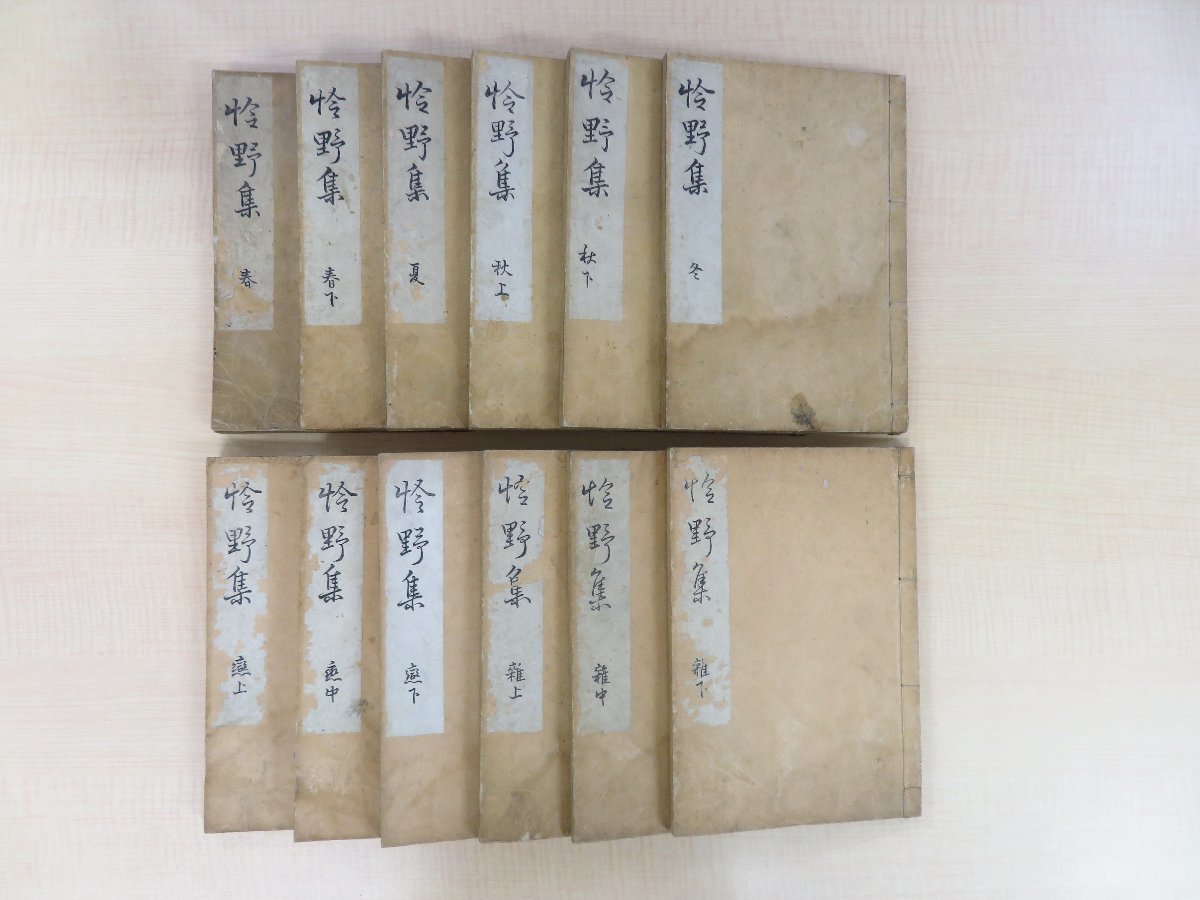 怜野集 春
怜野集 春下
怜野集 夏
怜野集 秋上
怜野集 秋下
怜野集 冬
怜野集 戀上
怜野集 戀中
怜野集 戀下
怜野集 雜上
怜野集 雜中
怜野集 雜下